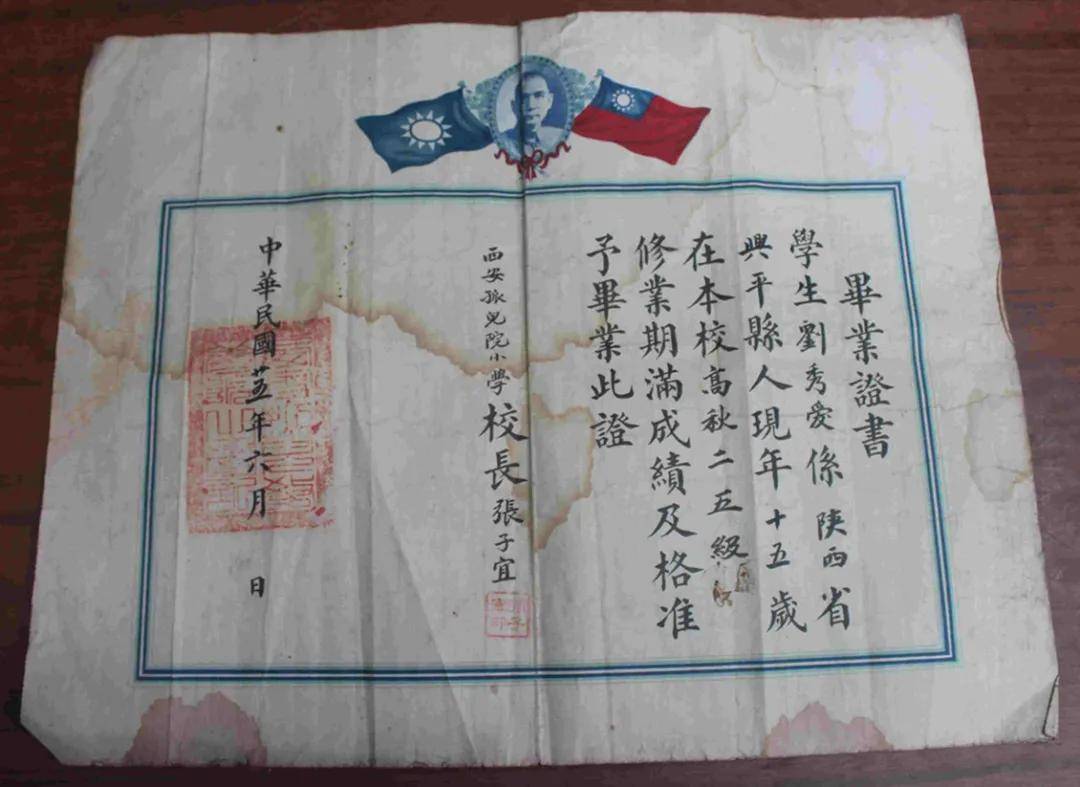 畢業證書
學生劉秀愛係陝西省
興平縣人現年十五歲
在本校高秋二五級
修業期滿成績及格准
予畢業此證
西安孤兒院小學校長張子宜
中華民國廿五年六月 日